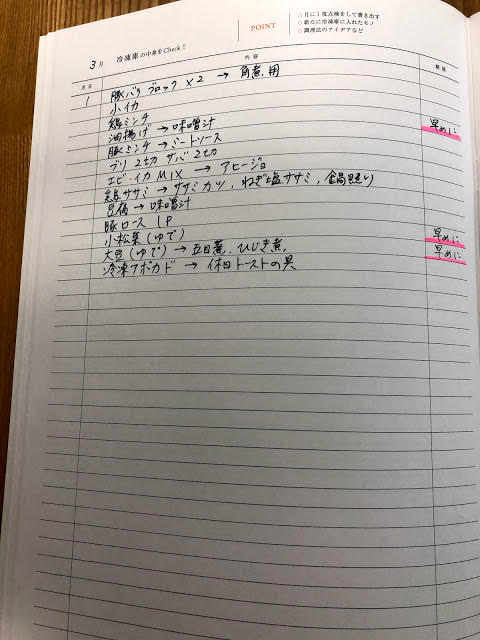 3月 冷凍庫の中身をCheck!!
POINT
○月に1度点検をして書き出す
○新たに冷凍庫に入れたモノ
○調理法のアイデアなど
内容
1 豚バラブロック×2 → 角煮用
小イカ
鶏ミンチ
油揚げ → 味噌汁 早めに
豚ミンチ → ミートソース
ブリ2切 サバ2切
エビ・イカMIX → アヒージョ
鶏ササミ → ササミカツ, ねぎ塩ササミ, 鍋照り
豆腐 → 味噌汁
豚ロース 1P
小松菜(ゆで) 早めに
大豆(ゆで) → 五目煮, ひじき煮, 早めに
冷凍アボカド → 休日トーストの具